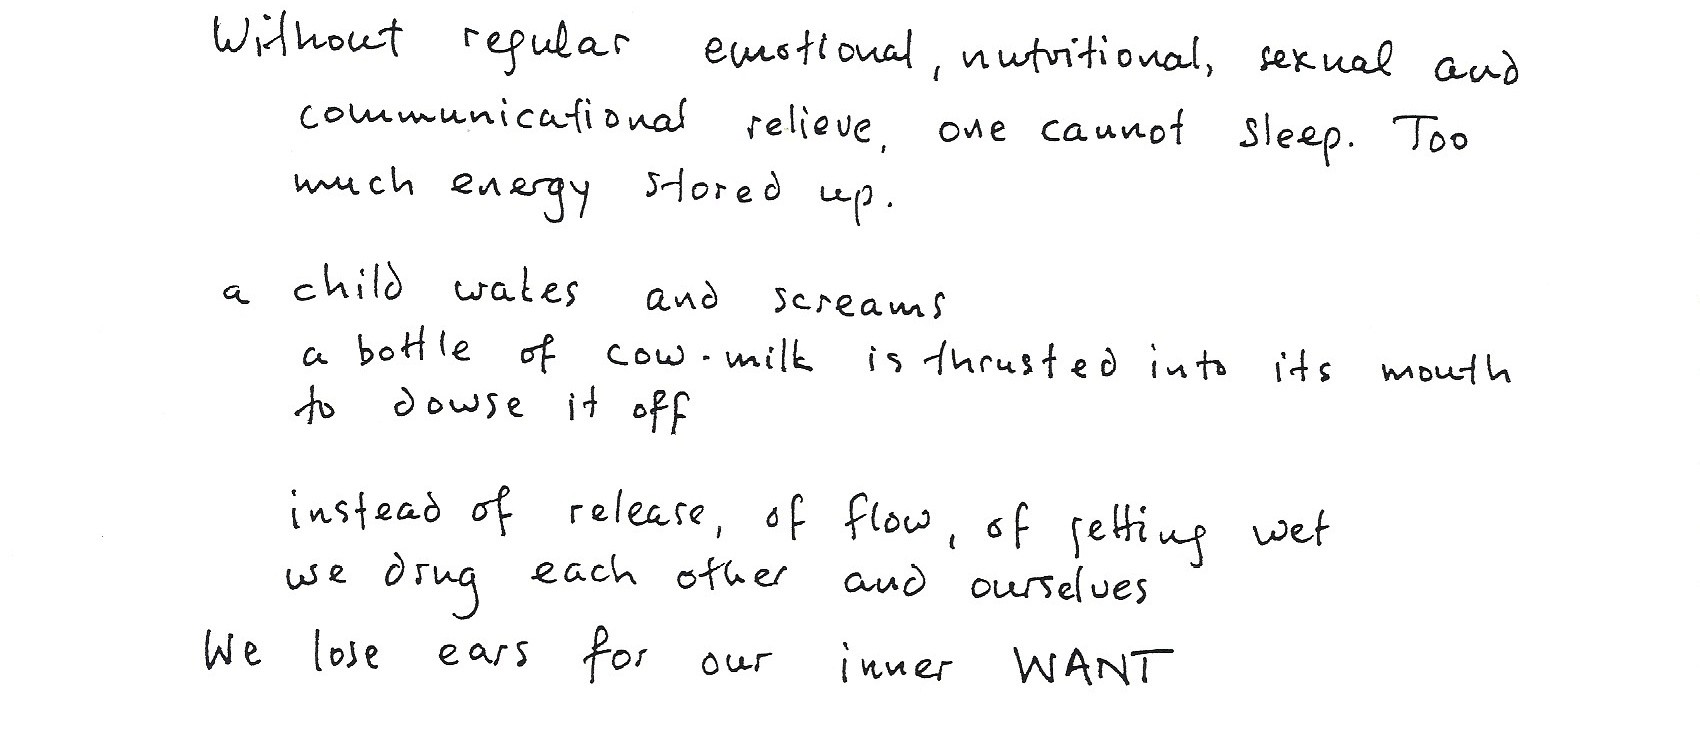 Without regular emotional, nutritional, sexual and
communicational relieve, one cannot sleep. Too
much energy stored up.
a child wakes and screams
a bottle of cow-milk is thrusted into its mouth
to dowse it off
instead of release, of flow, of getting wet
we drug each other and ourselves
We lose ears for our inner WANT